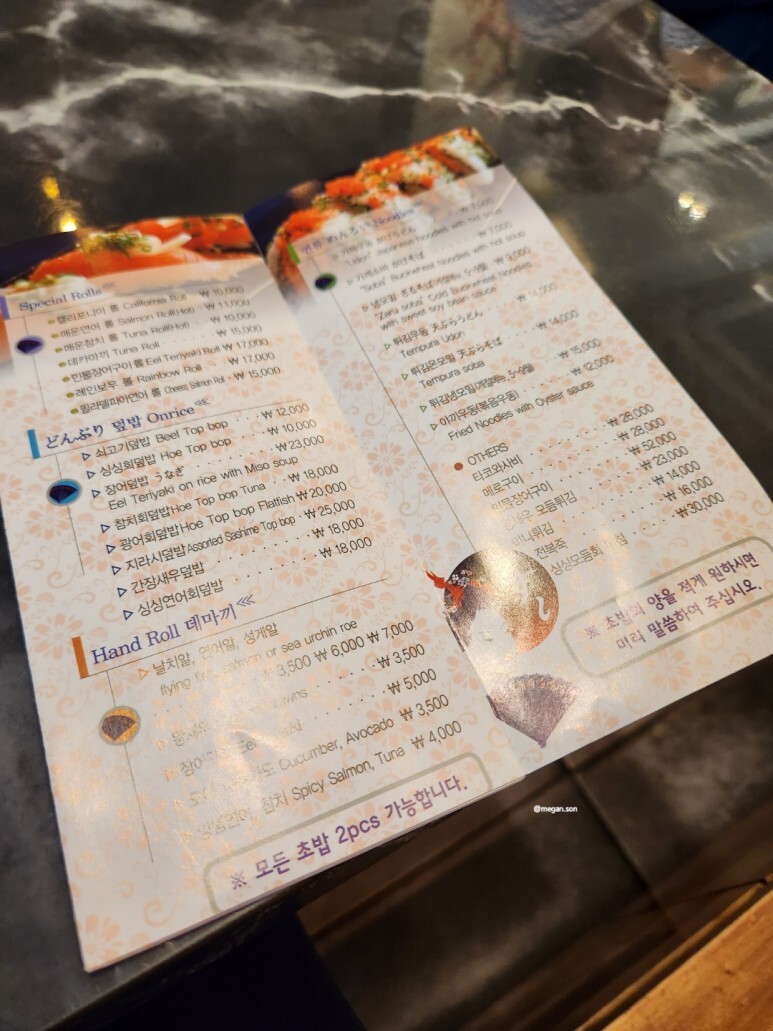 Special Rolls
캘리포니아 롤 California Roll ₩ 10,000
매운연어 롤 Salmon Roll(Hot) ₩ 11,000
매운참치 롤 Tuna Roll(Hot) ₩ 10,000
데카마끼 Tuna Roll ₩ 15,000
민물장어구이 롤 Eel Teriyaki Roll ₩ 17,000
레인보우 롤 Rainbow Roll ₩ 17,000
필라델피아연어 롤 Cheese Salmon Roll ₩ 15,000
どんぶり 덮밥 Onrice
쇠고기덮밥 Beef Top bop ₩ 12,000
싱싱회덮밥 Hoe Top bop ₩ 10,000
장어덮밥 うなぎ ₩ 23,000
Eel Teriyaki on rice with Miso soup
참치회덮밥 Hoe Top bop Tuna ₩ 18,000
광어회덮밥 Hoe Top bop Flatfish ₩ 20,000
지라시덮밥 Assorted Sashime Top bop ₩ 25,000
간장새우덮밥 ₩ 18,000
싱싱연어회덮밥 ₩ 18,000
Hand Roll 데마끼
날치알, 연어알, 성게알
flying fish, salmon or sea urchin roe
3,500 ₩ 6,000 ₩ 7,000
₩ 3,500
₩ 5,000
Cucumber, Avocado ₩ 3,500
참치 Spicy Salmon, Tuna ₩ 4,000
※ 모든 초밥 2pcs 가능합니다.
Noodles
₩ 7,000
"Udon" Japanese Noodles with hot soup
₩ 7,000
"Soba" Buckwheat Noodles with hot soup
₩ 9,000
"Zaru soba" Cold Buckwheat Noodles
with sweet soy bean sauce
튀김우동 天ぷらうどん ₩ 14,000
Tempura Udon
튀김온모밀 天ぷらそば ₩ 14,000
Tempura soba
튀김냉모밀(계절메뉴, 5~9월) ₩ 15,000
야끼우동(볶음우동) ₩ 12,000
Fried Noodles with Oyster sauce
OTHERS
타코와사비 ₩ 28,000
메로구이 ₩ 28,000
민물장어구이 ₩ 52,000
모듬튀김 ₩ 23,000
미니튀김 ₩ 14,000
전복죽 ₩ 16,000
싱싱모듬회 ₩ 30,000
※ 초밥의 양을 적게 원하시면
미리 말씀하여 주십시오.
@megan.son